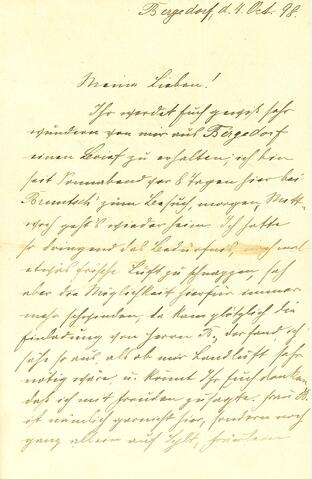 Bergedorf, d. 4. Oct. 98.
Meine Lieben!
Ihr werdet Euch gewiß sehr
wundern von mir aus Bergedorf
einen Brief zu erhalten; ich bin
seit Sonnabend vor 8 Tagen hier bei
zum Besuch, morgen, Mitt-
woch geht's wieder heim. Ich hatte
so dringend das Bedürfnis, noch mal
etwas frische Luft zu schnappen, sah
aber die Möglichkeit hierfür immer
mehr schwinden, da kam plötzlich die
Einladung von Herrn B., der fand, ich
sähe so aus, als ob mir Landluft sehr
nötig wäre, u. könnt Ihr Euch denken,
daß ich mit Freuden zusagte. Frau B.
ist nämlich garnicht hier, sondern noch
ganz allein auf Sylt, Fräulein